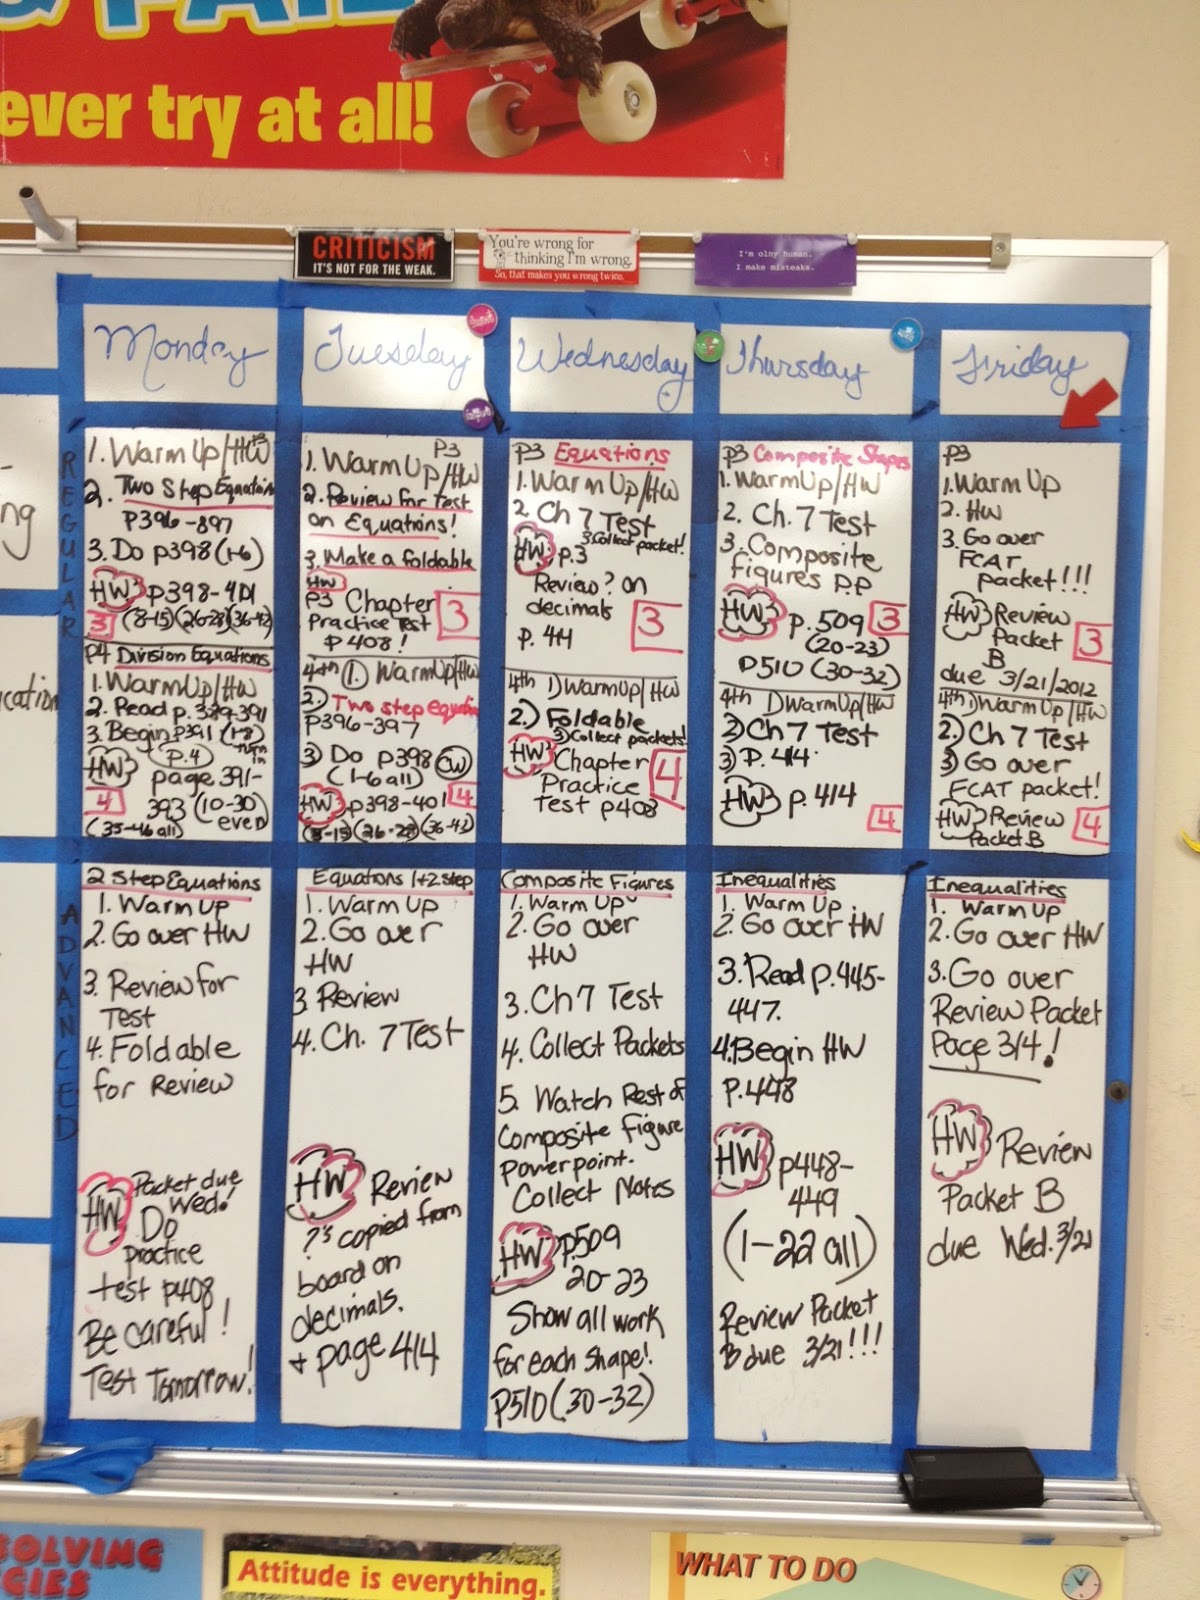 ever try at all!
CRITICISM
IT'S NOT FOR THE WEAK.
You're wrong for
thinking I'm wrong.
So, that makes you wrong twice.
I'm olny human.
I make misteaks.
Monday
Tuesday
Wednesday
Thursday
Friday
REGULAR
1. Warm Up/HW P3
2. Two Step Equation
P396-897
3. Do p398 (1-6)
HW p398-401
3 (8-15)(26-28)(36-42)
P4 Division Equations
1. WarmUp/HW
2. Read p. 389-391
3. Begin p391 (1-8)
HW P.4
page 391-
4 393 (10-30)
even
(35-46 all)
P3
1. Warm Up/HW
2. Review for Test
on Equations!
3. Make a foldable
HW
P3 Chapter 3
Practice Test
P 408!
4th 1. WarmUp/HW
2.) Two step equation
P396-397
3) Do p398 CW
(1-6 all)
HW p398-401 4
(8-15)(26-28)(36-42)
P3 Equations
1. Warm Up/HW
2. Ch 7 Test
3. Collect packet!
HW p.3
Review ? on
decimals 3
p. 414
4th 1) WarmUp/HW
2.) Foldable
3) Collect packets!
HW Chapter 4
Practice
Test p408
P3 Composite Shapes
1. WarmUp/HW
2. Ch. 7 Test
3. Composite
figures P.P
HW 3
p. 509
(20-23)
p510 (30-32)
4th 1) WarmUp/HW
2) Ch 7 Test
3) P. 414
HW p. 414
4
P3
1. Warm Up
2. HW
3. Go over
FCAT
packet!!!
HW Review
Packet 3
B
due 3/21/2012
4th 1) WarmUp/HW
2.) Ch 7 Test
3) Go over
FCAT packet!
HW Review 4
Packet B
ADVANCED
2 Step Equations
1. Warm Up
2. Go over HW
3. Review for
Test
4. Foldable
for Review
HW Packet due
Wed!
Do
practice
test p408
Be careful!
Test Tomorrow!
Equations 1+2 step
1. Warm Up
2. Go over
HW
3 Review
4. Ch. 7 Test
HW Review
?'s copied from
board on
decimals.
+ page 414
Composite Figures
1. Warm Up
2. Go over
HW
3. Ch 7 Test
4. Collect Packets
5. Watch Rest of
Composite Figure
powerpoint.
Collect Notes
HW p509
20-23
Show all work
for each shape!
P510 (30-32)
Inequalities
1. Warm Up
2. Go over HW
3. Read p.445-
447.
4. Begin HW
P.448
HW p448-
449
(1-22 all)
Review Packet
B due 3/21!!!
Inequalities
1. Warm Up
2. Go over HW
3. Go over
Review Packet
Page 3/4!
HW Review
Packet B
due Wed. 3/21
OLVING
GIES
Attitude is everything.
WHAT TO DO